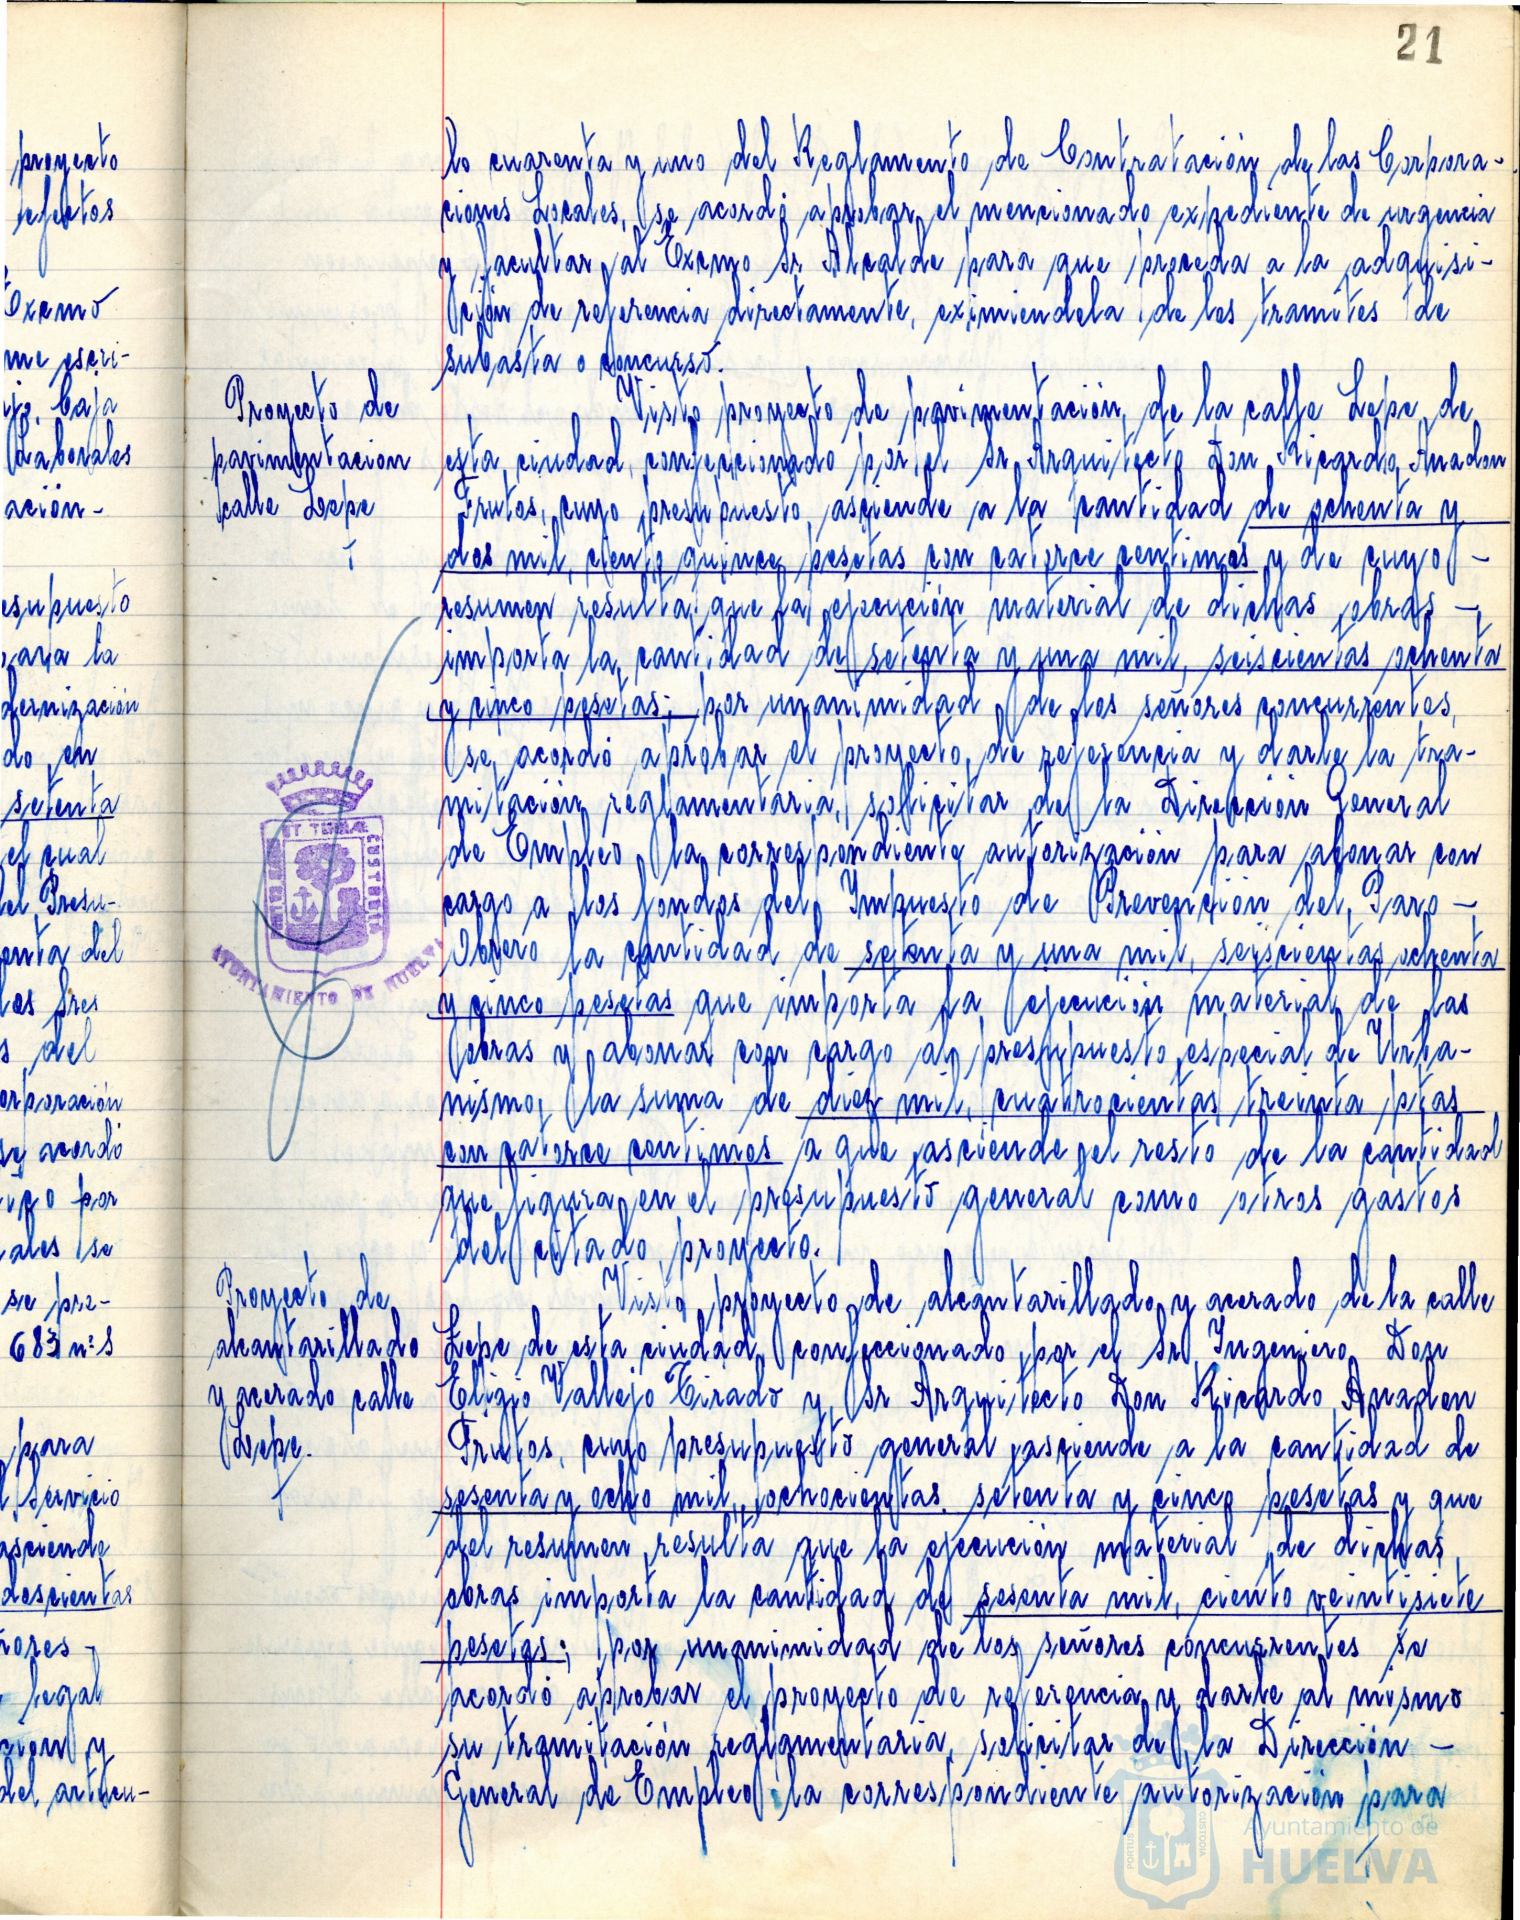 21
proyecto
efectos
Excmo
me escri-
ijo, baja
Laborales
ación-
esupuesto
para la
dernización
do en
setenta
el cual
el Presu-
enta del
les Sres
s del
orporación
se acordó
ico por
ales se
se pre-
683 nº S
para
l Servicio
asciende
doscientas
ñores -
legal
ción y
del artícu-
lo cuarenta y uno del Reglamento de Contratación de las Corpora-
ciones Locales, se acordó aprobar el mencionado expediente de urgencia
y facultar al Excmo Sr Alcalde para que proceda a la adquisi-
ción de referencia directamente, eximiendola de los tramites de
subasta o concurso.
Proyecto de
pavimentacion
calle Lepe
Visto proyecto de pavimentación de la calle Lepe de
esta ciudad, confeccionado por el Sr Arquitecto Don Ricardo Anadon
Frutos, cuyo presupuesto asciende a la cantidad de ochenta y
dos mil, ciento quince pesetas con catorce centimos y de cuyo -
resumen resulta que la ejecución material de dichas obras -
importa la cantidad de setenta y una mil, seiscientas ochenta
y cinco pesetas; por unanimidad de los señores concurrentes,
se acordó aprobar el proyecto de referencia y darle la tra-
mitación reglamentaria, solicitar de la Dirección General
de Empleo la correspondiente autorización para abonar con
cargo a los fondos del Impuesto de Prevención del Paro -
Obrero la cantidad de setenta y una mil, seiscientas ochenta
y cinco pesetas que importa la ejecución material de las
obras y abonar con cargo al presupuesto especial de Urba-
nismo, la suma de diez mil, cuatrocientas treinta ptas
con catorce centimos a que asciende el resto de la cantidad
que figura en el presupuesto general como otros gastos
del citado proyecto.
ET TERRAE CUSTODIA
AYUNTAMIENTO DE HUELVA
Proyecto de
alcantarillado
y acerado calle
Lepe.
Visto proyecto de alcantarillado y acerado de la calle
Lepe de esta ciudad confeccionado por el Sr Ingeniero Don
Eligio Vallejo Tirado y Sr Arquitecto Don Ricardo Anadon
Frutos, cuyo presupuesto general asciende a la cantidad de
sesenta y ocho mil, ochocientas setenta y cinco pesetas y que
del resumen resulta que la ejecución material de dichas
obras importa la cantidad de sesenta mil, ciento veintisiete
pesetas; por unanimidad de los señores concurrentes se
acordó aprobar el proyecto de referencia y darle al mismo
su tramitación reglamentaria, solicitar de la Dirección -
General de Empleo la correspondiente autorización para
Ayuntamiento de
HUELVA